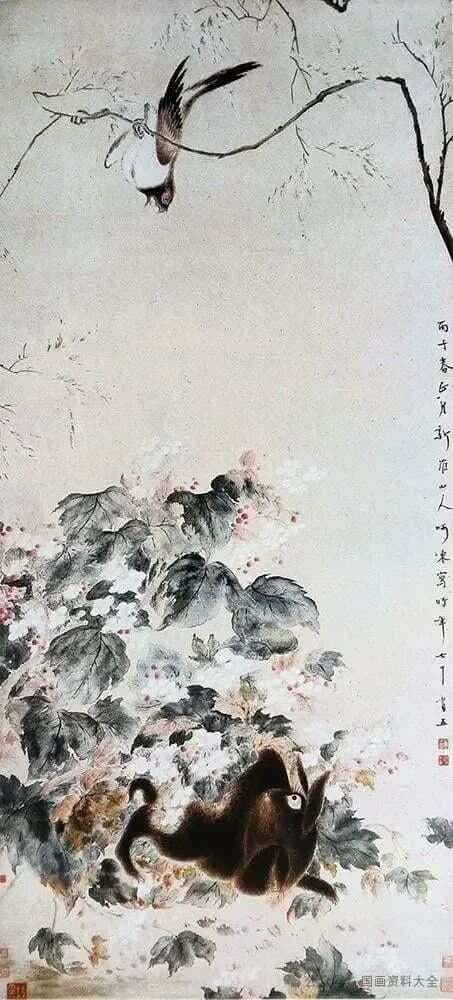 丙子春正月新羅山人呵凍寫時年七十有五
国画资料大全